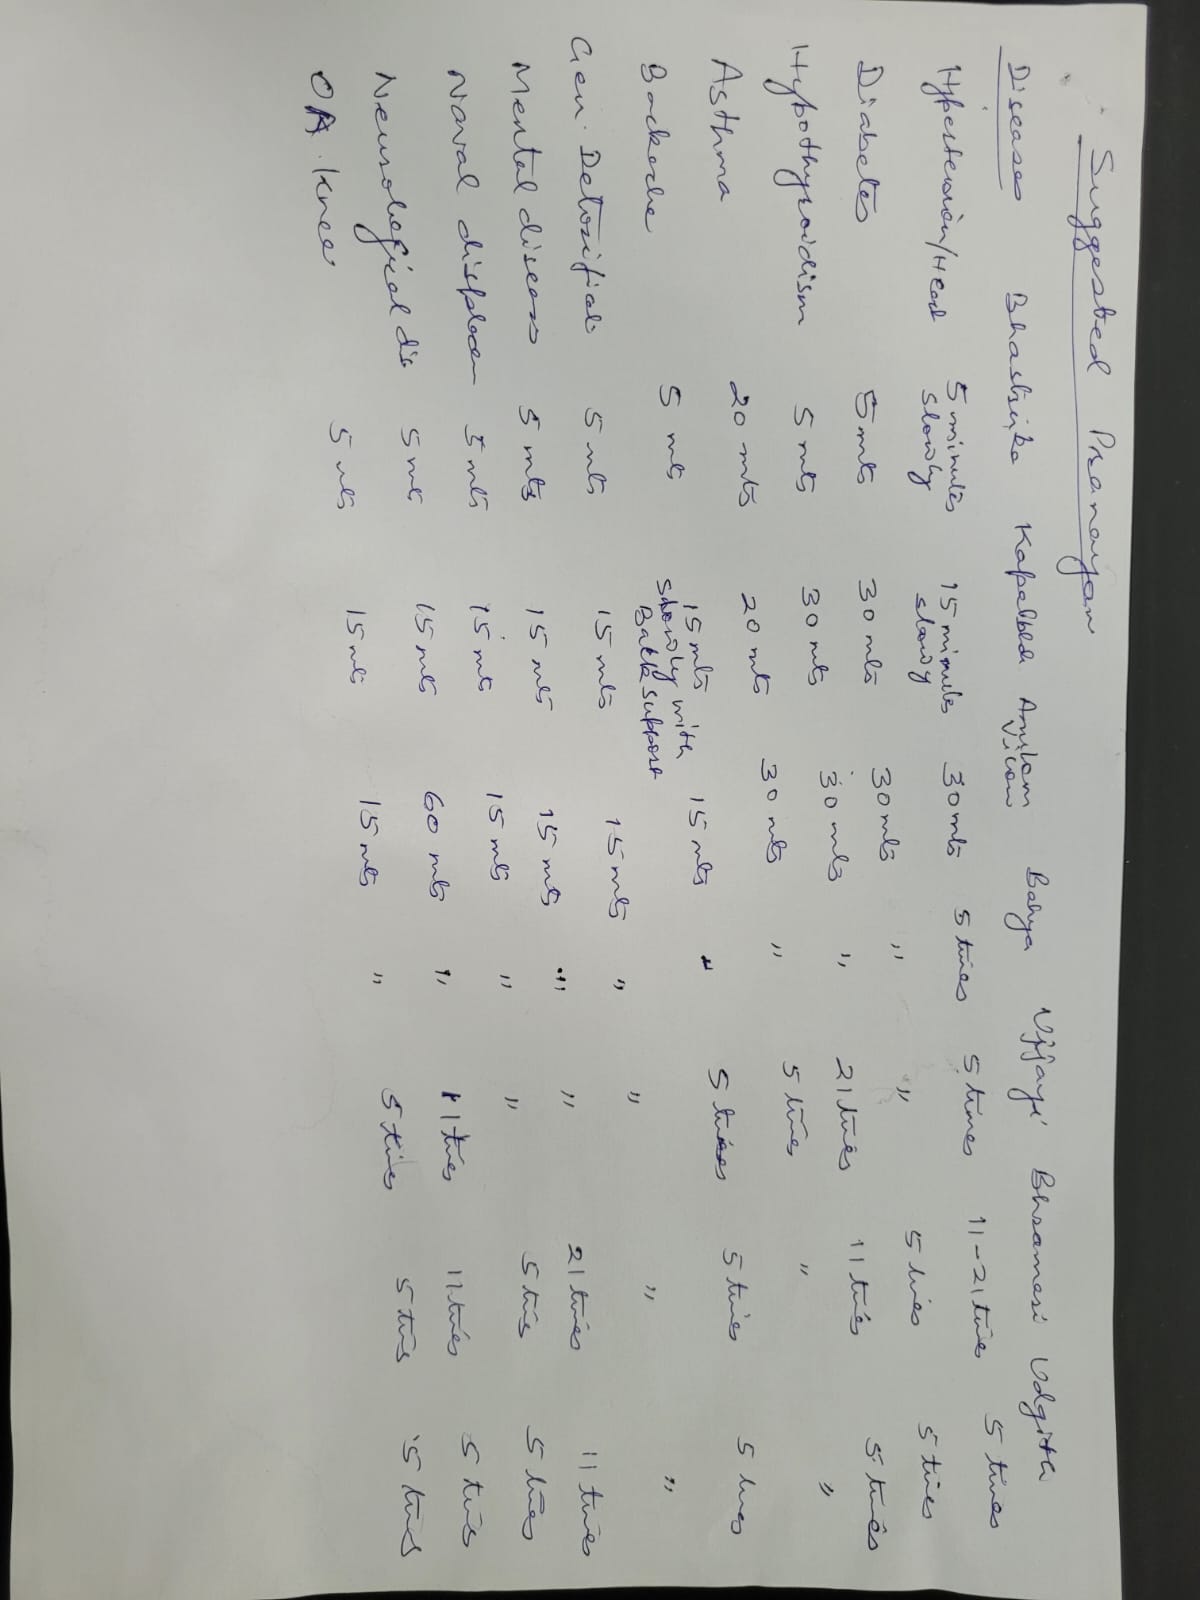 Suggested Pranayam
Diseases Bhastrika Kapalbhati Anulom Vilom Bahya Ujjayi Bhramari Udgith
Hypertension/Heart 5 minutes slowly 15 minutes slowy 30 mts 5 times 5 times 11-21 times 5 times
Diabetes 5 mts 30 mts 30 mts " " 5 times 5 times
Hypothyroidism 5 mts 30 mts 30 mts " 21 times 11 times 5 times
Asthma 20 mts 20 mts 30 mts " 5 times " "
Backache 5 mts 15 mts slowly with Back support 15 mts " 5 times 5 times 5 times
Gen. Detoxificat 5 mts 15 mts 15 mts " " " "
Mental diseases 5 mts 15 mts 15 mts " " 21 times 11 times
Naval displacem 5 mts 15 mts 15 mts " " 5 times 5 times
Neurological dis 5 mts 15 mts 60 mts " 11 times 11 times 5 times
OA Knee 5 mts 15 mts 15 mts " 5 times 5 times 5 times